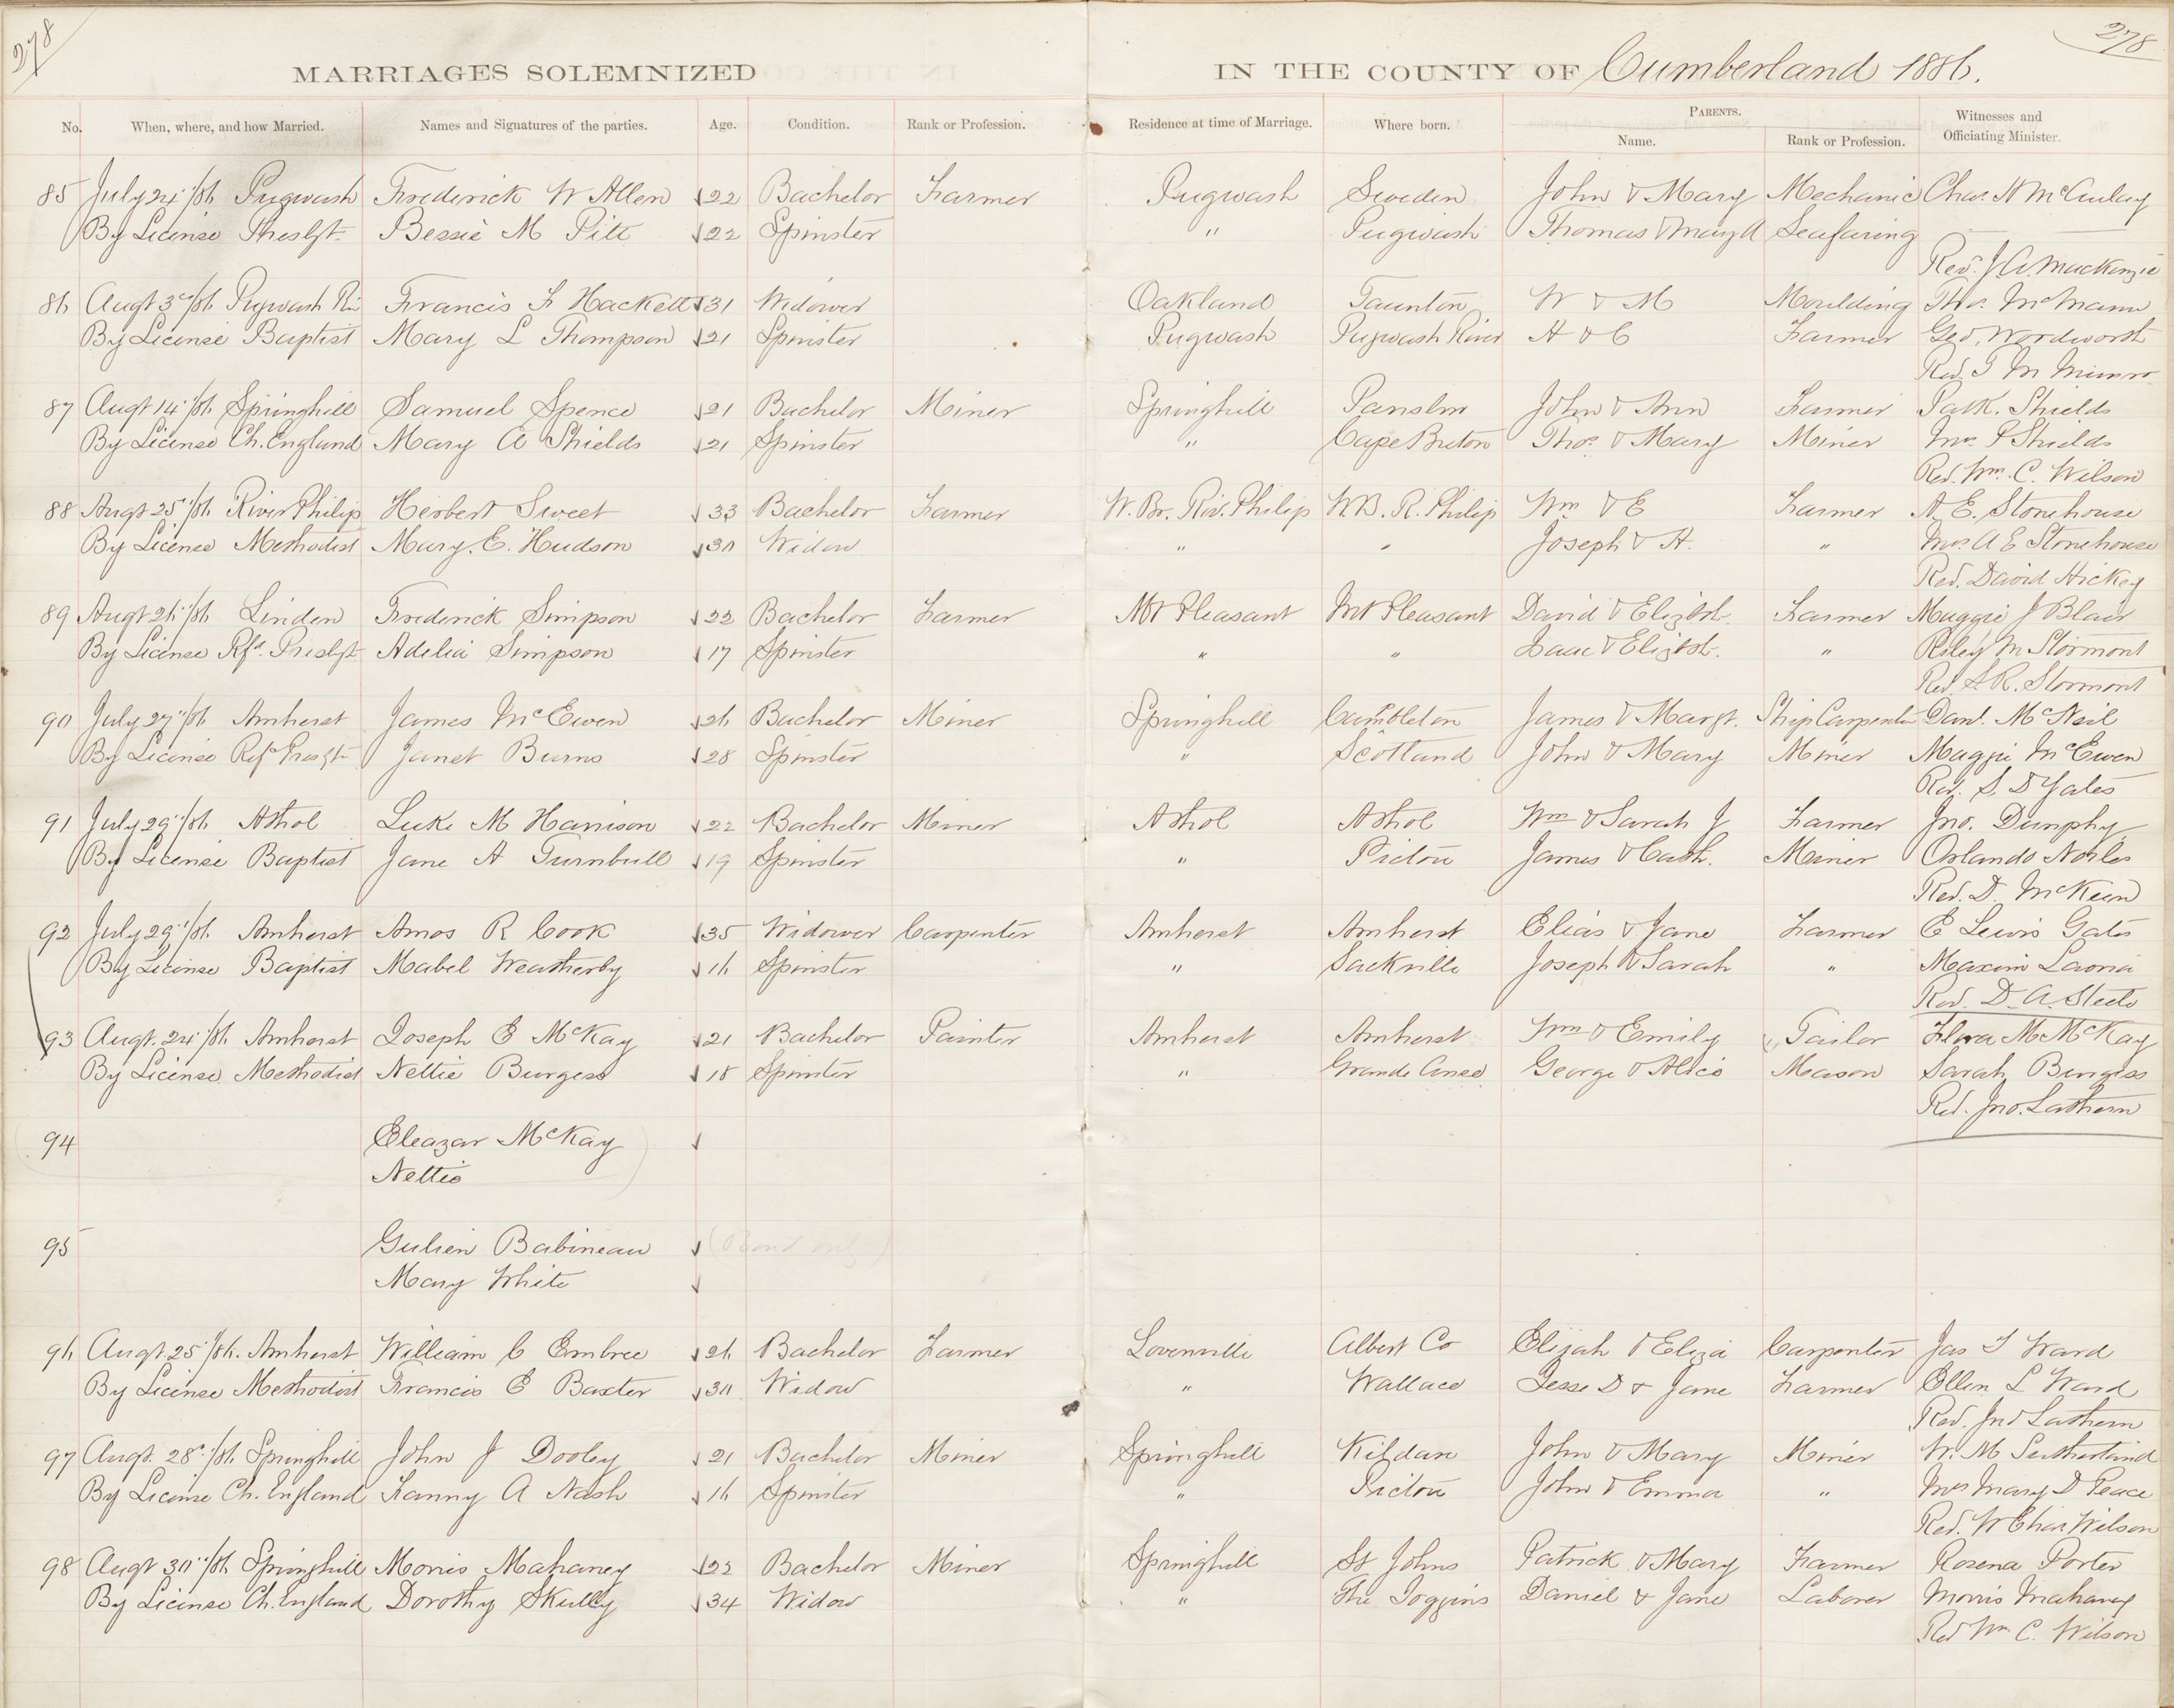 278
278
MARRIAGES SOLEMNIZED IN THE COUNTY OF Cumberland 1886.
No. When, where, and how Married. Names and Signatures of the parties. Age. Condition. Rank or Profession. Residence at time of Marriage. Where born. PARENTS. Name. Rank or Profession. Witnesses and Officiating Minister.
85 July 24"/86 Pugwash Frederick W Allen 22 Bachelor Farmer Pugwash Sweden John & Mary Mechanic Chas. H McAulay
By License Presbyt. Bessie M Pitt 22 Spinster " Pugwash Thomas & Mary A Seafaring
Rev. J. A. Mackenzie
86 Augt 3rd/86 Pugwash Riv Francis F Hackett 31 Widower Oakland Taunton W & M Moulding Thos. McMann
By License Baptist Mary L Thompson 21 Spinster Pugwash Pugwash River A & C Farmer Geo. Wordworth
Rev. T M Munro
87 Augt 14"/86 Springhill Samuel Spence 21 Bachelor Miner Springhill John & Ann Farmer Patk. Shields
By License Ch. England Mary A Shields 21 Spinster " Cape Breton Thos. & Mary Miner Mrs P Shields
Rev. Wm. C. Wilson
88 Augt 25"/86 River Philip Herbert Sweet 33 Bachelor Farmer W. Br. Riv. Philip W.B. R. Philip Wm & E Farmer A. E. Stonehouse
By License Methodist Mary. E. Hudson 30 Widow " " Joseph & A. " Mrs. A E Stonehouse
Rev. David Hickey
89 Augt 26"/86 Linden Frederick Simpson 22 Bachelor Farmer Mt Pleasant Mt Pleasant David & Elizbth. Farmer Maggie J Blair
By License Rfd. Presbyt Adelia Simpson 17 Spinster " " Isaac & Elizbth. " Riley M Stormont
Rev A R. Stormont
90 July 27"/86 Amherst James McEwen 26 Bachelor Miner Springhill Cambleton James & Margt. Ship Carpenter Danl. McNeil
By License Refd Presyt Janet Burns 28 Spinster " Scotland John & Mary Miner Maggie McEwen
Rev. S. D Yates
91 July 29"/86 Athol Luke M Harrison 22 Bachelor Miner Athol Athol Wm & Sarah J Farmer Jno. Dunphy
By License Baptist Jane A Turnbull 19 Spinster " Pictou James & Cath. Miner Orlando Noiles
Rev. D. McKeen
92 July 29"/86 Amherst Amos R Cook 35 Widower Carpenter Amherst Amherst Elias & Jane Farmer E Lewis Gates
By License Baptist Mabel Weatherby 16 Spinster " Sackville Joseph & Sarah "
Rev. D. A. Steele
93 Augt. 24"/86 Amherst Joseph E McKay 21 Bachelor Painter Amherst Amherst Wm & Emily Tailor Flora M McKay
By License Methodist Nettie Burgess 18 Spinster " Grande Anse George & Alice Mason Sarah Burgess
Rev. Jno. Lathern
94 Eleazar McKay
Nettie
95 Gulien Babineau (Bond only)
Mary White
96 Augt 25"/86. Amherst William C Embree 26 Bachelor Farmer Albert Co Elijah & Eliza Carpenter Jas T Ward
By License Methodist Francis E Baxter 30 Widow " Wallace Jesse D & Jane Farmer Ellen L Ward
Rev. Jno Lathern
97 Augt. 28"/86 Springhill John J Dooley 21 Bachelor Miner Springhill Kildare John & Mary Miner W. M Sutherland
By License Ch. England Fanny A Nash 16 Spinster " Pictou John & Emma " Mrs Mary D Peace
Rev. W Chas Wilson
98 Augt 30"/86 Springhill Morris Mahaney 22 Bachelor Miner Springhill St Johns Patrick & Mary Farmer Rosena Porter
By License Ch. England Dorothy Skully 34 Widow " The Joggins Daniel & Jane Laborer Morris Mahaney
Rev Wm C. Wilson